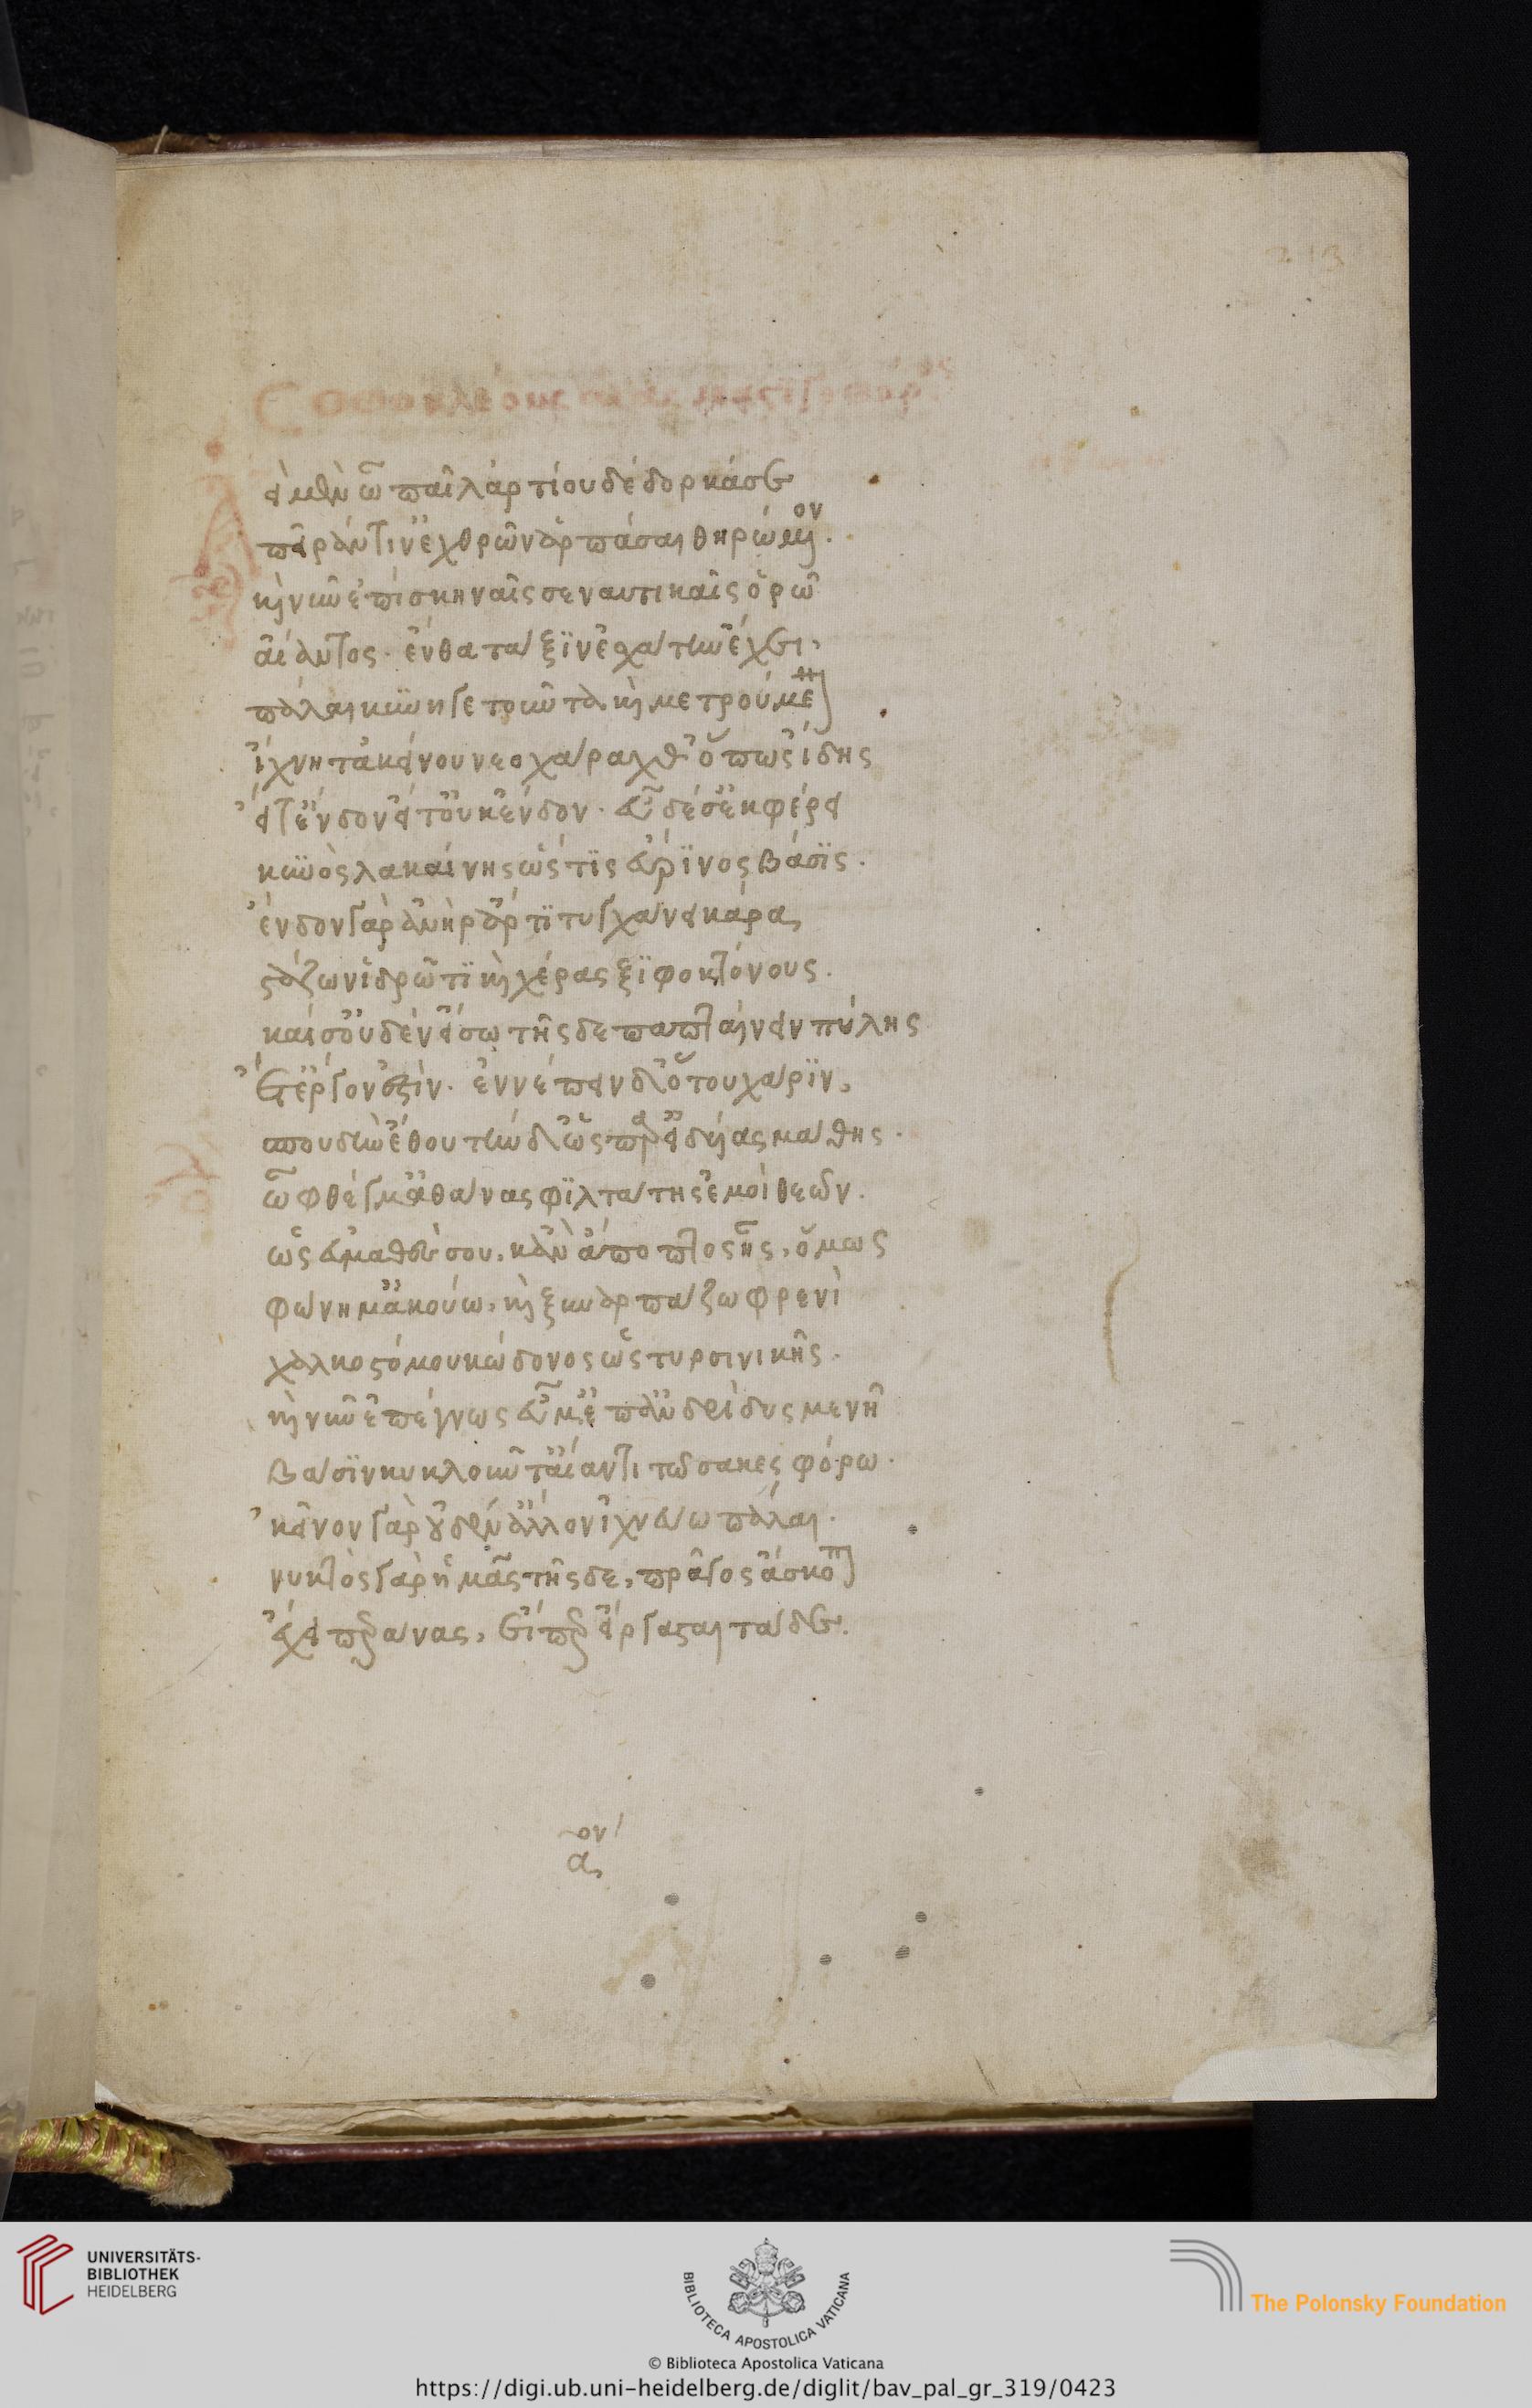 213
Σοφοκλέους αἴας μαστιγοφόρος
ἀεὶ μὲν ὦ παῖ λαρτίου δέδορκά σε
πεῖράν τιν' ἐχθρῶν ἁρπάσαι θηρώμενον.
καὶ νῦν ἐπὶ σκηναῖς σε ναυτικαῖς ὁρῶ
αἴαντος. ἔνθα τάξιν ἐσχάτην ἔχει,
πάλαι κυνηγετοῦντα καὶ μετρούμενον
ἴχνη τἀκείνου νεοχάραχθ' ὅπως ἴδης
εἴτ' ἔνδον εἴτ' οὐκ ἔνδον. εὖ δέ σ' ἐκφέρει
κυνὸς λακαίνης ὥς τις εὔρινος βάσις.
ἔνδον γὰρ ἀνὴρ ἄρτι τυγχάνει κάρα,
στάζων ἱδρῶτι καὶ χέρας ξιφοκτόνους.
καί σ' οὐδὲν εἴσω τῆσδε παπταίνειν πύλης
ἔτ' ἔργον ἐστίν. ἐννέπειν δ' ὅτου χάριν,
σπουδὴν ἔθου τήνδ' ὡς παρ' εἰδυίας μάθης.
ὦ φθέγμ' ἀθάνας φιλτάτης ἐμοὶ θεῶν.
ὡς εὐμαθές σου, κἂν ἄποπτος ἦς, ὅμως
φώνημ' ἀκούω, καὶ ξυναρπάζω φρενὶ
χαλκοστόμου κώδωνος ὡς τυρσηνικῆς.
καὶ νῦν ἐπέγνως εὖ μ' ἐπ' ἀνδρὶ δυσμενῆ
βάσιν κυκλοῦντ' αἴαντι τῶ σακεσφόρω.
κεῖνον γὰρ οὐδέν' ἄλλον ἰχνεύω πάλαι.
νυκτὸς γὰρ ἡμᾶς τῆσδε, πρᾶγος ἄσκοπον
ἔχει περάνας, εἴπερ εἴργασται τάδε.
ον
α,
UNIVERSITÄTS-
BIBLIOTHEK
HEIDELBERG
BIBLIOTECA APOSTOLICA VATICANA
The Polonsky Foundation
© Biblioteca Apostolica Vaticana
https://digi.ub.uni-heidelberg.de/diglit/bav_pal_gr_319/0423